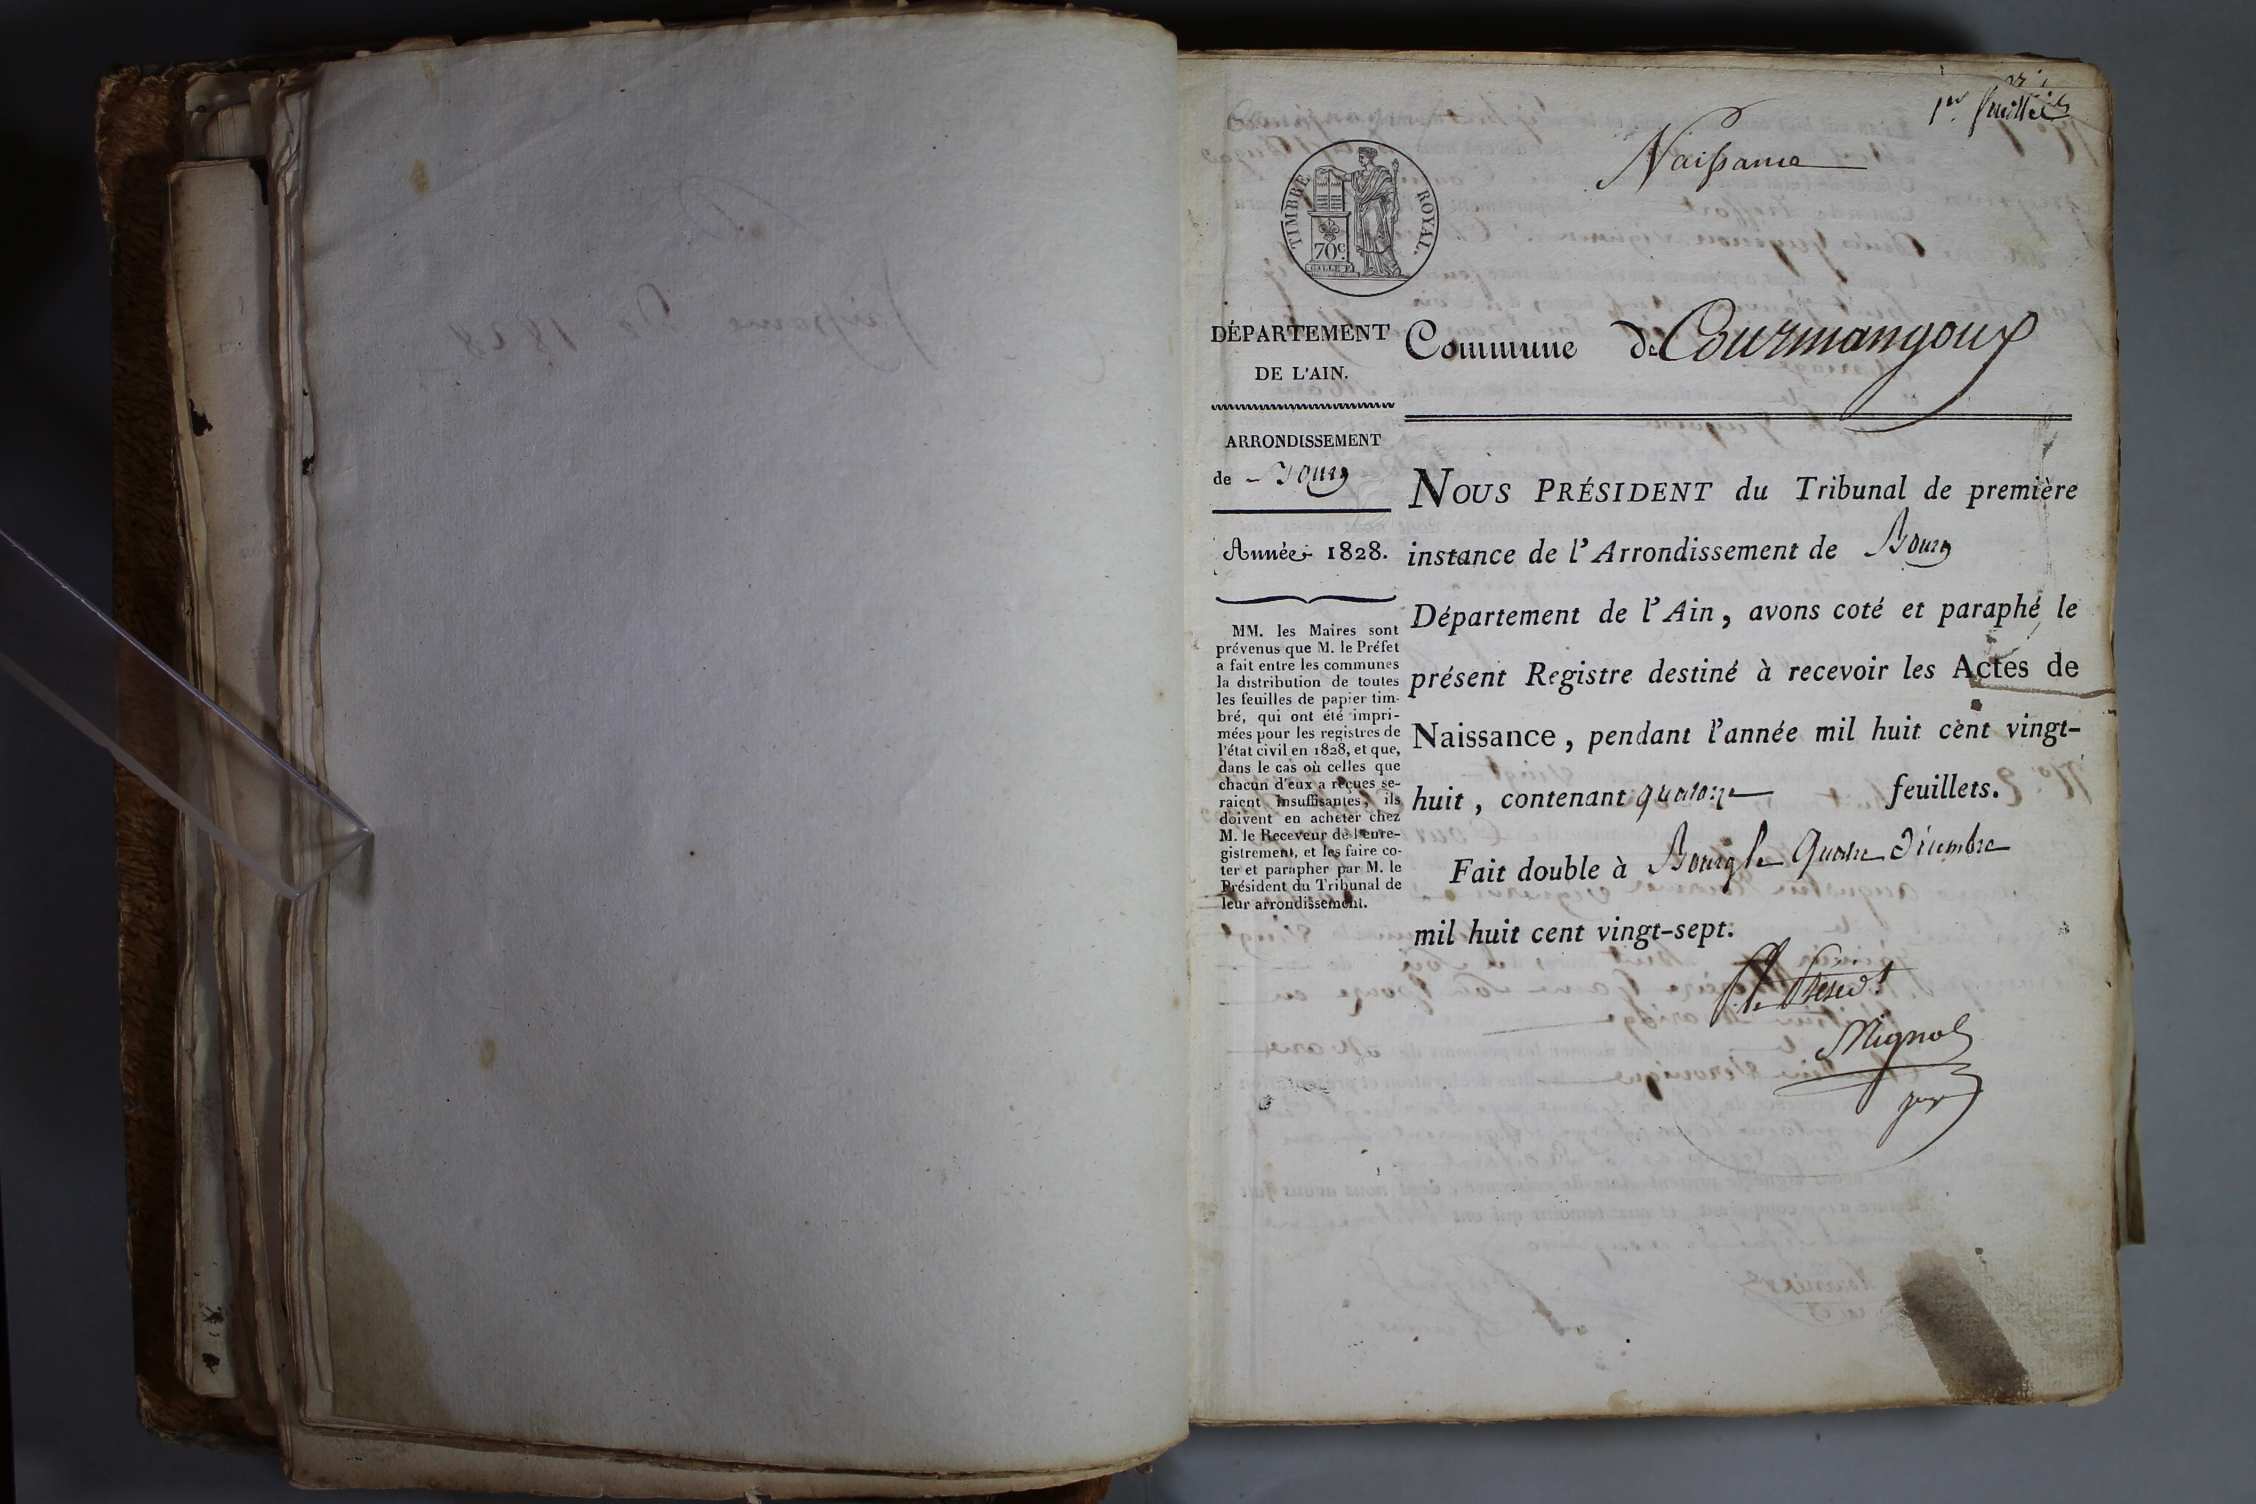 1er feuillet
Naissance
TIMBRE ROYAL.
70c
DÉPARTEMENT
DE L'AIN.
ARRONDISSEMENT
de Bourg
Année 1828.
MM. les Maires sont
prévenus que M. le Préfet
a fait entre les communes
la distribution de toutes
les feuilles de papier tim-
bré, qui ont été impri-
mées pour les registres de
l'état civil en 1828, et que,
dans le cas où celles que
chacun d'eux a reçues se-
raient insuffisantes, ils
doivent en acheter chez
M. le Receveur de l'enre-
gistrement, et les faire co-
ter et parapher par M. le
Président du Tribunal de
leur arrondissement.
Commune de Courmangoux
NOUS PRÉSIDENT du Tribunal de première
instance de l'Arrondissement de Bourg
Département de l'Ain, avons coté et paraphé le
présent Registre destiné à recevoir les Actes de
Naissance, pendant l'année mil huit cent vingt-
huit, contenant quatorze feuillets.
Fait double à Bourg le quatre décembre
mil huit cent vingt-sept.